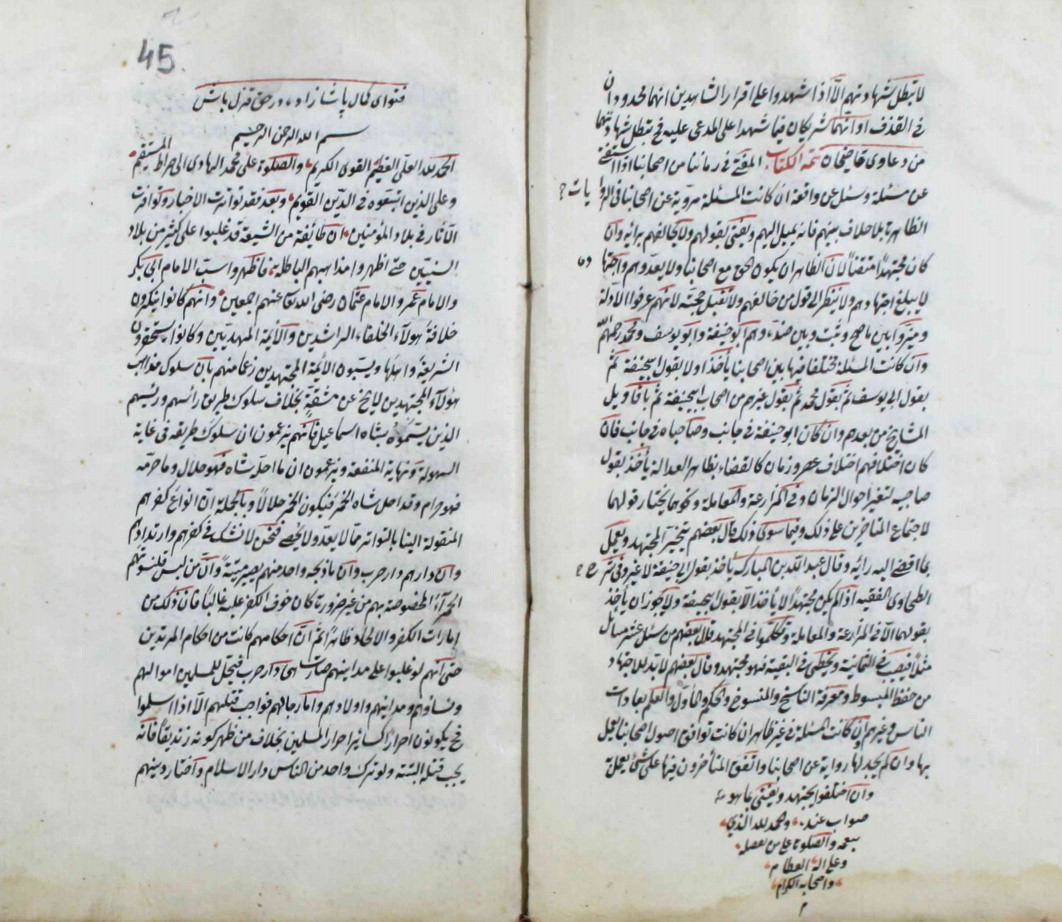 لا تبطل شهادتهم الا اذا شهدوا على اقرار الشاهدين انهما محدودان
في القذف او انهما شريكان فيما شهدا على المدعى عليه فح تبطل شهادتهما
من دعاوى قاضيخان تمة الكتاب المفتى في زماننا من اصحابنا اذا استفتى
عن مسئلة وسئل عن واقعة ان كانت المسئلة مروية عن اصحابنا في الروايات
الظاهرة بلا خلاف بينهم فانه يميل اليهم ويفتى بقولهم ولا يخالفهم برايه وان
كان مجتهدا متقنا لان الظاهر ان يكون الحق مع اصحابنا ولا يعدوهم واجتهاده
لا يبلغ اجتهادهم ولا ينظر الى قول من خالفهم ولا تقبل حجته لانهم عرفوا الادلة
وميزوا بين ما صح وثبت وبين ضده وهم ابو حنيفة وابو يوسف ومحمد رحمهم الله
وان كانت المسئلة مختلفا فيها بين اصحابنا ياخذ اولا بقول ابيحنيفة ثم
بقول ابى يوسف ثم بقول محمد ثم بقول غيرهم من اصحاب ابيحنيفة ثم باقاويل
المشايخ من بعدهم وان كان ابو حنيفة في جانب وصاحباه في جانب فان
كان اختلافهم اختلاف عصر وزمان كالقضاء بظاهر العدالة ياخذ بقول
صاحبيه لتغير احوال الزمان وفي المزارعة والمعاملة ونحوهما يختار قولهما
لاجتماع المتاخرين على ذلك وفيما سوى ذلك قال بعضهم يتخير المجتهد ويعمل
بما افضى اليه رايه وقال عبد الله بن المبارك ياخذ بقول ابى حنيفة لا غير وفي شرح
الطحاوى الفقيه اذا لم يكن مجتهدا لا ياخذ الا بقول ابيحنيفة ولا يجوز ان ياخذ
بقولهما الا في المزارعة والمعاملة وتكلموا في المجتهد قال بعضهم من سئل عن عشر مسائل
مثلا فيصيب في الثمانية ويخطى في البقية فهو مجتهد وقال بعضهم لا بد للاجتهاد
من حفظ المبسوط ومعرفة الناسخ والمنسوخ والمحكم والماول والعلم بعادات
الناس وعرفهم وان كانت المسئلة في غير ظاهر ان كانت توافق اصول اصحابنا يعمل
بها وان لم يجد لها رواية عن اصحابنا واتفق المتأخرون فيها على شئ يعمل به
وان اختلفوا يجتهد ويفتى بما هو
صواب عنده والحمد لله الذي
وعلى اله العظام
واصحابه الكرام
م
45
فتواى كمال پاشا زاده در حق قزل باش
بسم الله الرحمن الرحيم
الحمد لله العلى العظيم القوى الكريم والصلوة على محمد الهادى الى صراط المستقيم
وعلى الذين اتبعوه في الدين القويم وبعد فقد تواترت الاخبار وتواترت
الآثار في بلاد المؤمنين ان طائفة من الشيعة قد غلبوا على كثير من بلاد
السنيين حتى اظهروا مذاهبهم الباطلة فاظهروا سب الامام ابى بكر
والامام عمر والامام عثمان رضى الله تعا عنهم اجمعين وانهم كانوا ينكرون
خلافة هؤلاء الخلفاء الراشدين والائمة المهديين وكانوا يستحقرون
الشريعة واهلها ويسبون الائمة المجتهدين زعما منهم بان سلوك مذاهب
هؤلاء المجتهدين لا يخ عن مشقة بخلاف سلوك طريق راسهم ورئيسهم
الذين يسمونه بشاه اسماعيل فانهم يزعمون ان سلوك طريقه في غاية
السهولة ونهاية المنفعة ويزعمون ان ما احله شاه فهو حلال وما حرمه
فهو حرام وقد احل شاه الخمر فيكون الخمر حلالا وبالجملة ان انواع كفرهم
المنقولة الينا بالتواتر مما لا يعد ولا يحصى فنحن لا نشك في كفرهم وارتدادهم
وان دارهم دار حرب وان ما ذبحه واحد منهم يصير ميتة وان من لبس قلنسوتهم
الحمراء المخصوصة بهم من غير ضرورة كان خوف الكفر عليه غالبا فان ذلك من
امارات الكفر والالحاد ظاهرا ثم ان احكامهم كانت من احكام المرتدين
حتى انهم لو غلبوا على مداينهم صارت هى دار حرب فيحل للمسلمين اموالهم
ونساؤهم ومداينهم واولادهم واما رجالهم فواجب قتلهم الا اذا اسلموا
فح يكونون احرارا كسائر احرار المسلمين بخلاف من ظهر كونه زنديقا فانه
يجب قتله البتة ولو ترك واحد من الناس دار الاسلام واختار دينهم